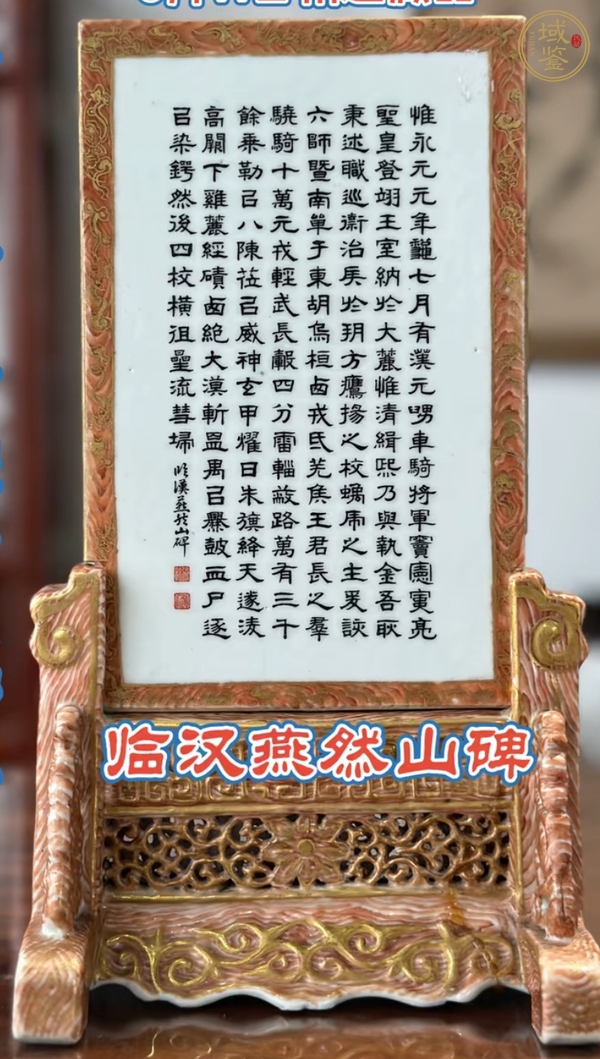 域鉴
惟永元元年龝七月有漢元舅車騎將軍竇憲寅亮
聖皇登翊王室納於大麓惟清緝熙乃與執金吾耿
秉述職巡禦治兵於朔方鷹揚之校螭虎之主爰該
六師暨南單于東胡烏桓西戎氐羌侯王君長之羣
驍騎十萬元戎輕武長轂四分雷輜蔽路萬有三千
餘乘勒㠯八陳莅㠯威神玄甲耀日朱旗絳天遂凌
高闕下雞麓經磧鹵絕大漠斬昷禺㠯釁鼓血尸逐
㠯染鍔然後四校橫徂星流彗埽
臨漢燕然山碑
临汉燕然山碑